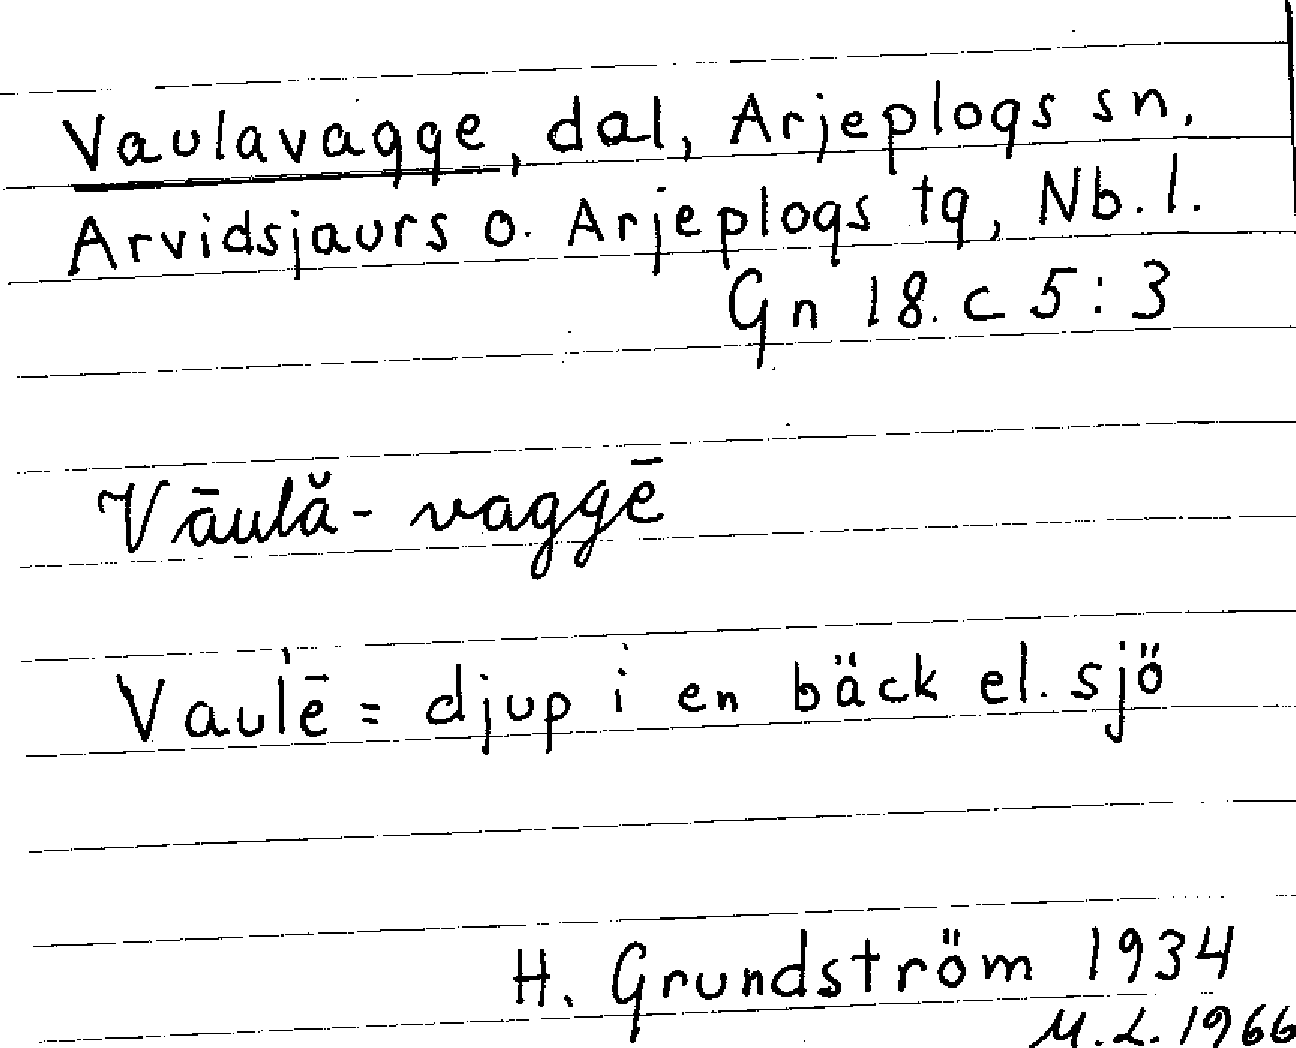 Vaulavagge, dal, Arjeplogs sn.
Arvidsjaurs o. Arjeplogs tg, Nb. l.
Gn 18. c 5:3
Vāulă- vaggē
Vau'lē = djup i en bäck el. sjö
H. Grundström 1934
M.L. 1966